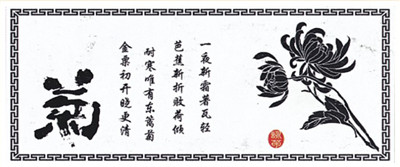 一夜新霜著瓦轻
芭蕉新折败荷倾
耐寒唯有东篱菊
金粟初开晓更清
菊